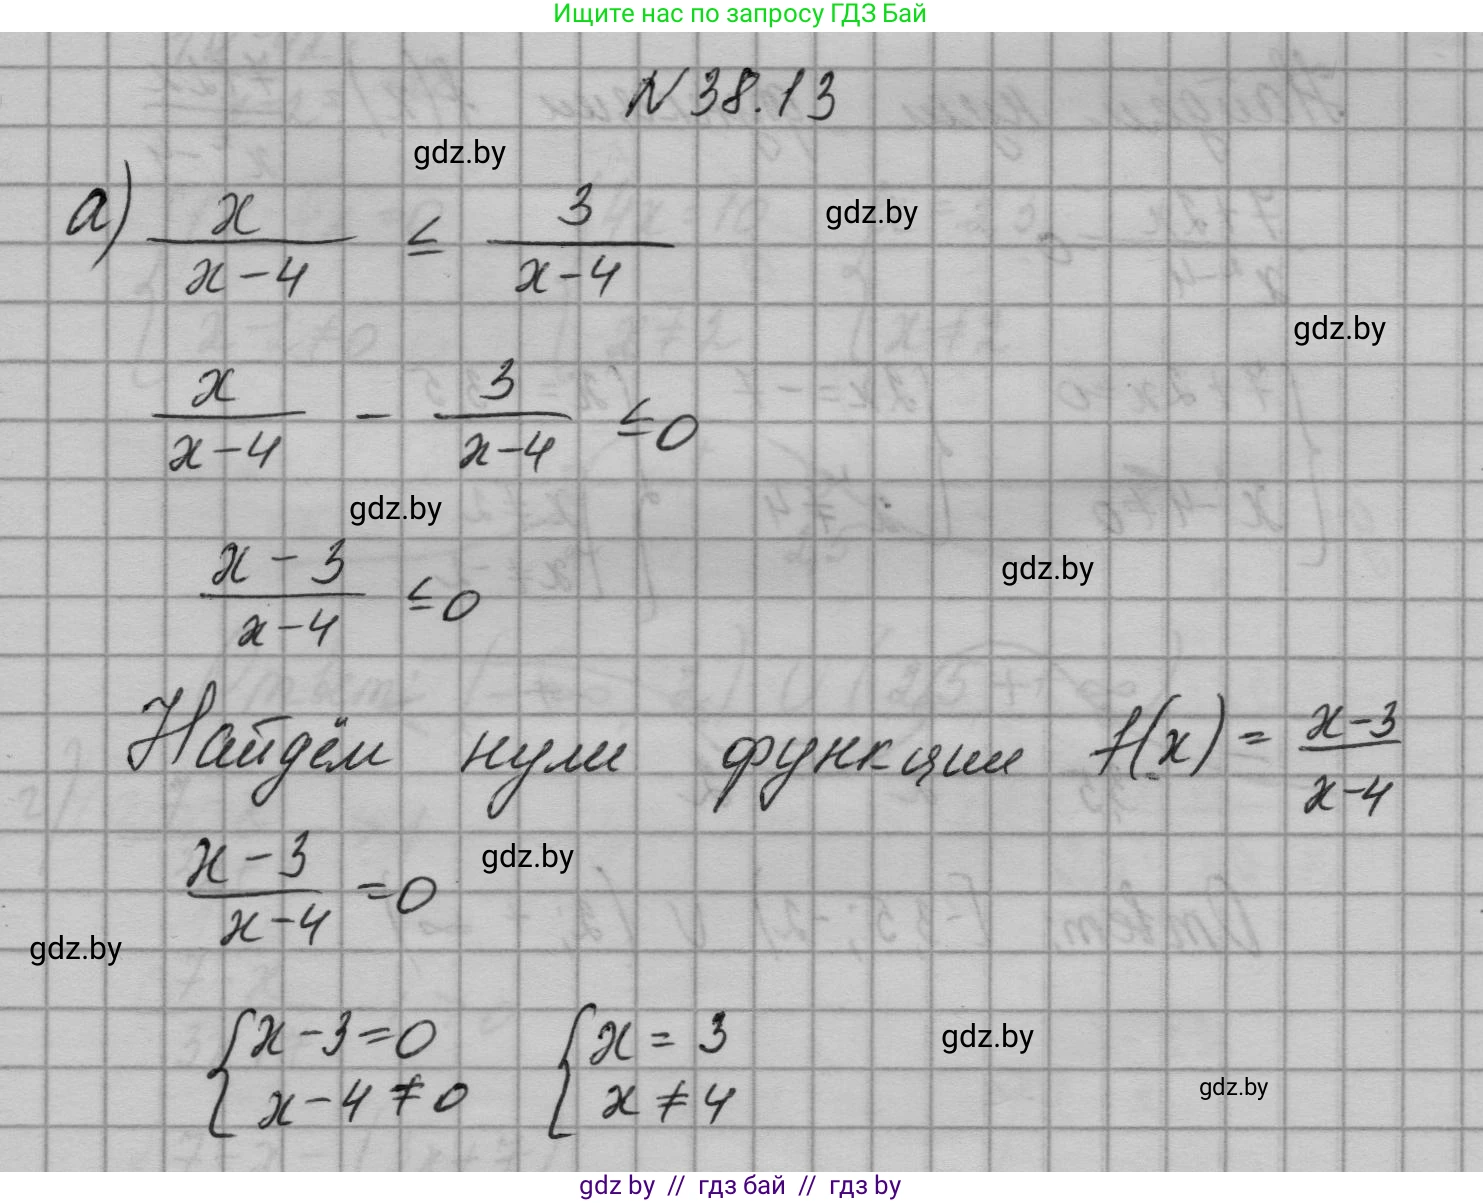 Ищите нас по запросу ГДЗ Бай
N 38.13
gdz.by
а) x/(x-4) ≤ 3/(x-4)
gdz.by
gdz.by
x/(x-4) - 3/(x-4) ≤ 0
gdz.by
(x-3)/(x-4) ≤ 0
gdz.by
Найдём нули функции f(x) = (x-3)/(x-4)
(x-3)/(x-4) = 0
gdz.by
gdz.by
{x-3=0 {x=3
gdz.by
{x-4≠0 {x≠4
gdz.by
gdz by // гдз бай // гдз by